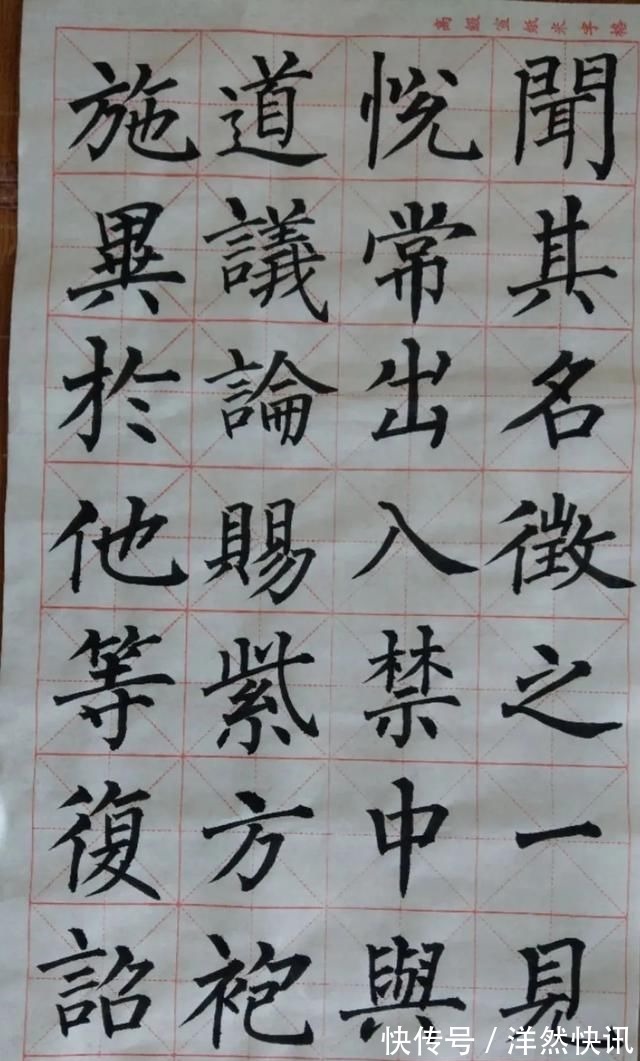 高級宣紙米字格
聞其名徵之一見
悅常出入禁中與
道議論賜紫方袍
施異於他等復詔
快传号 / 洋然快讯